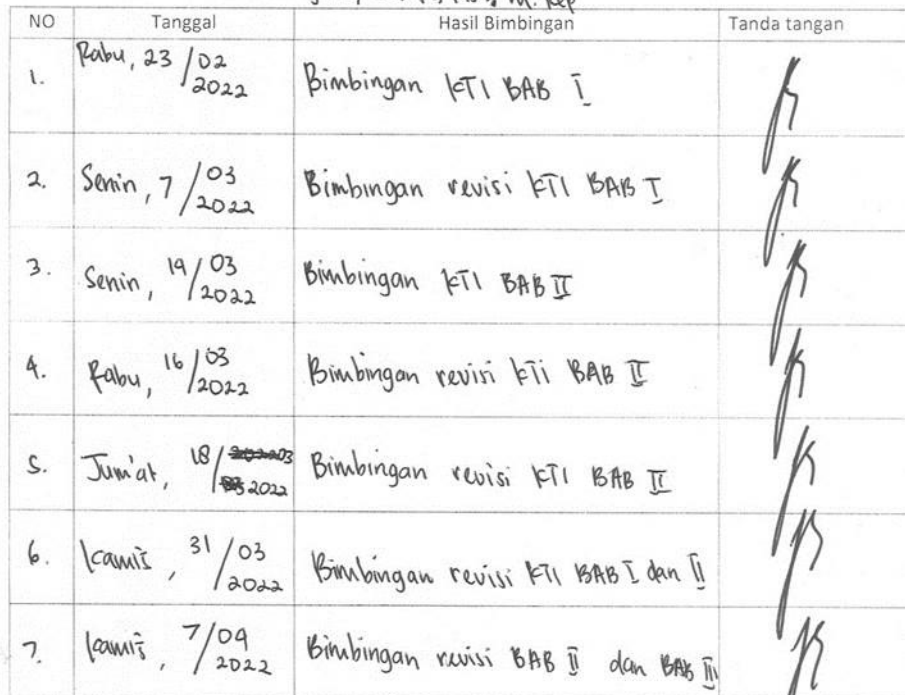 M. Kep
NO Tanggal Hasil Bimbingan Tanda tangan
1. Rabu, 23/02 2022 Bimbingan KTI BAB I
2. Senin, 7/03 2022 Bimbingan revisi KTI BAB I
3. Senin, 14/03 2022 Bimbingan KTI BAB II
4. Rabu, 16/03 2022 Bimbingan revisi KTI BAB II
5. Jum'at, 18/03 2022 Bimbingan revisi KTI BAB II
6. Kamis, 31/03 2022 Bimbingan revisi KTI BAB I dan II
7. Kamis, 7/04 2022 Bimbingan revisi BAB II dan BAB III